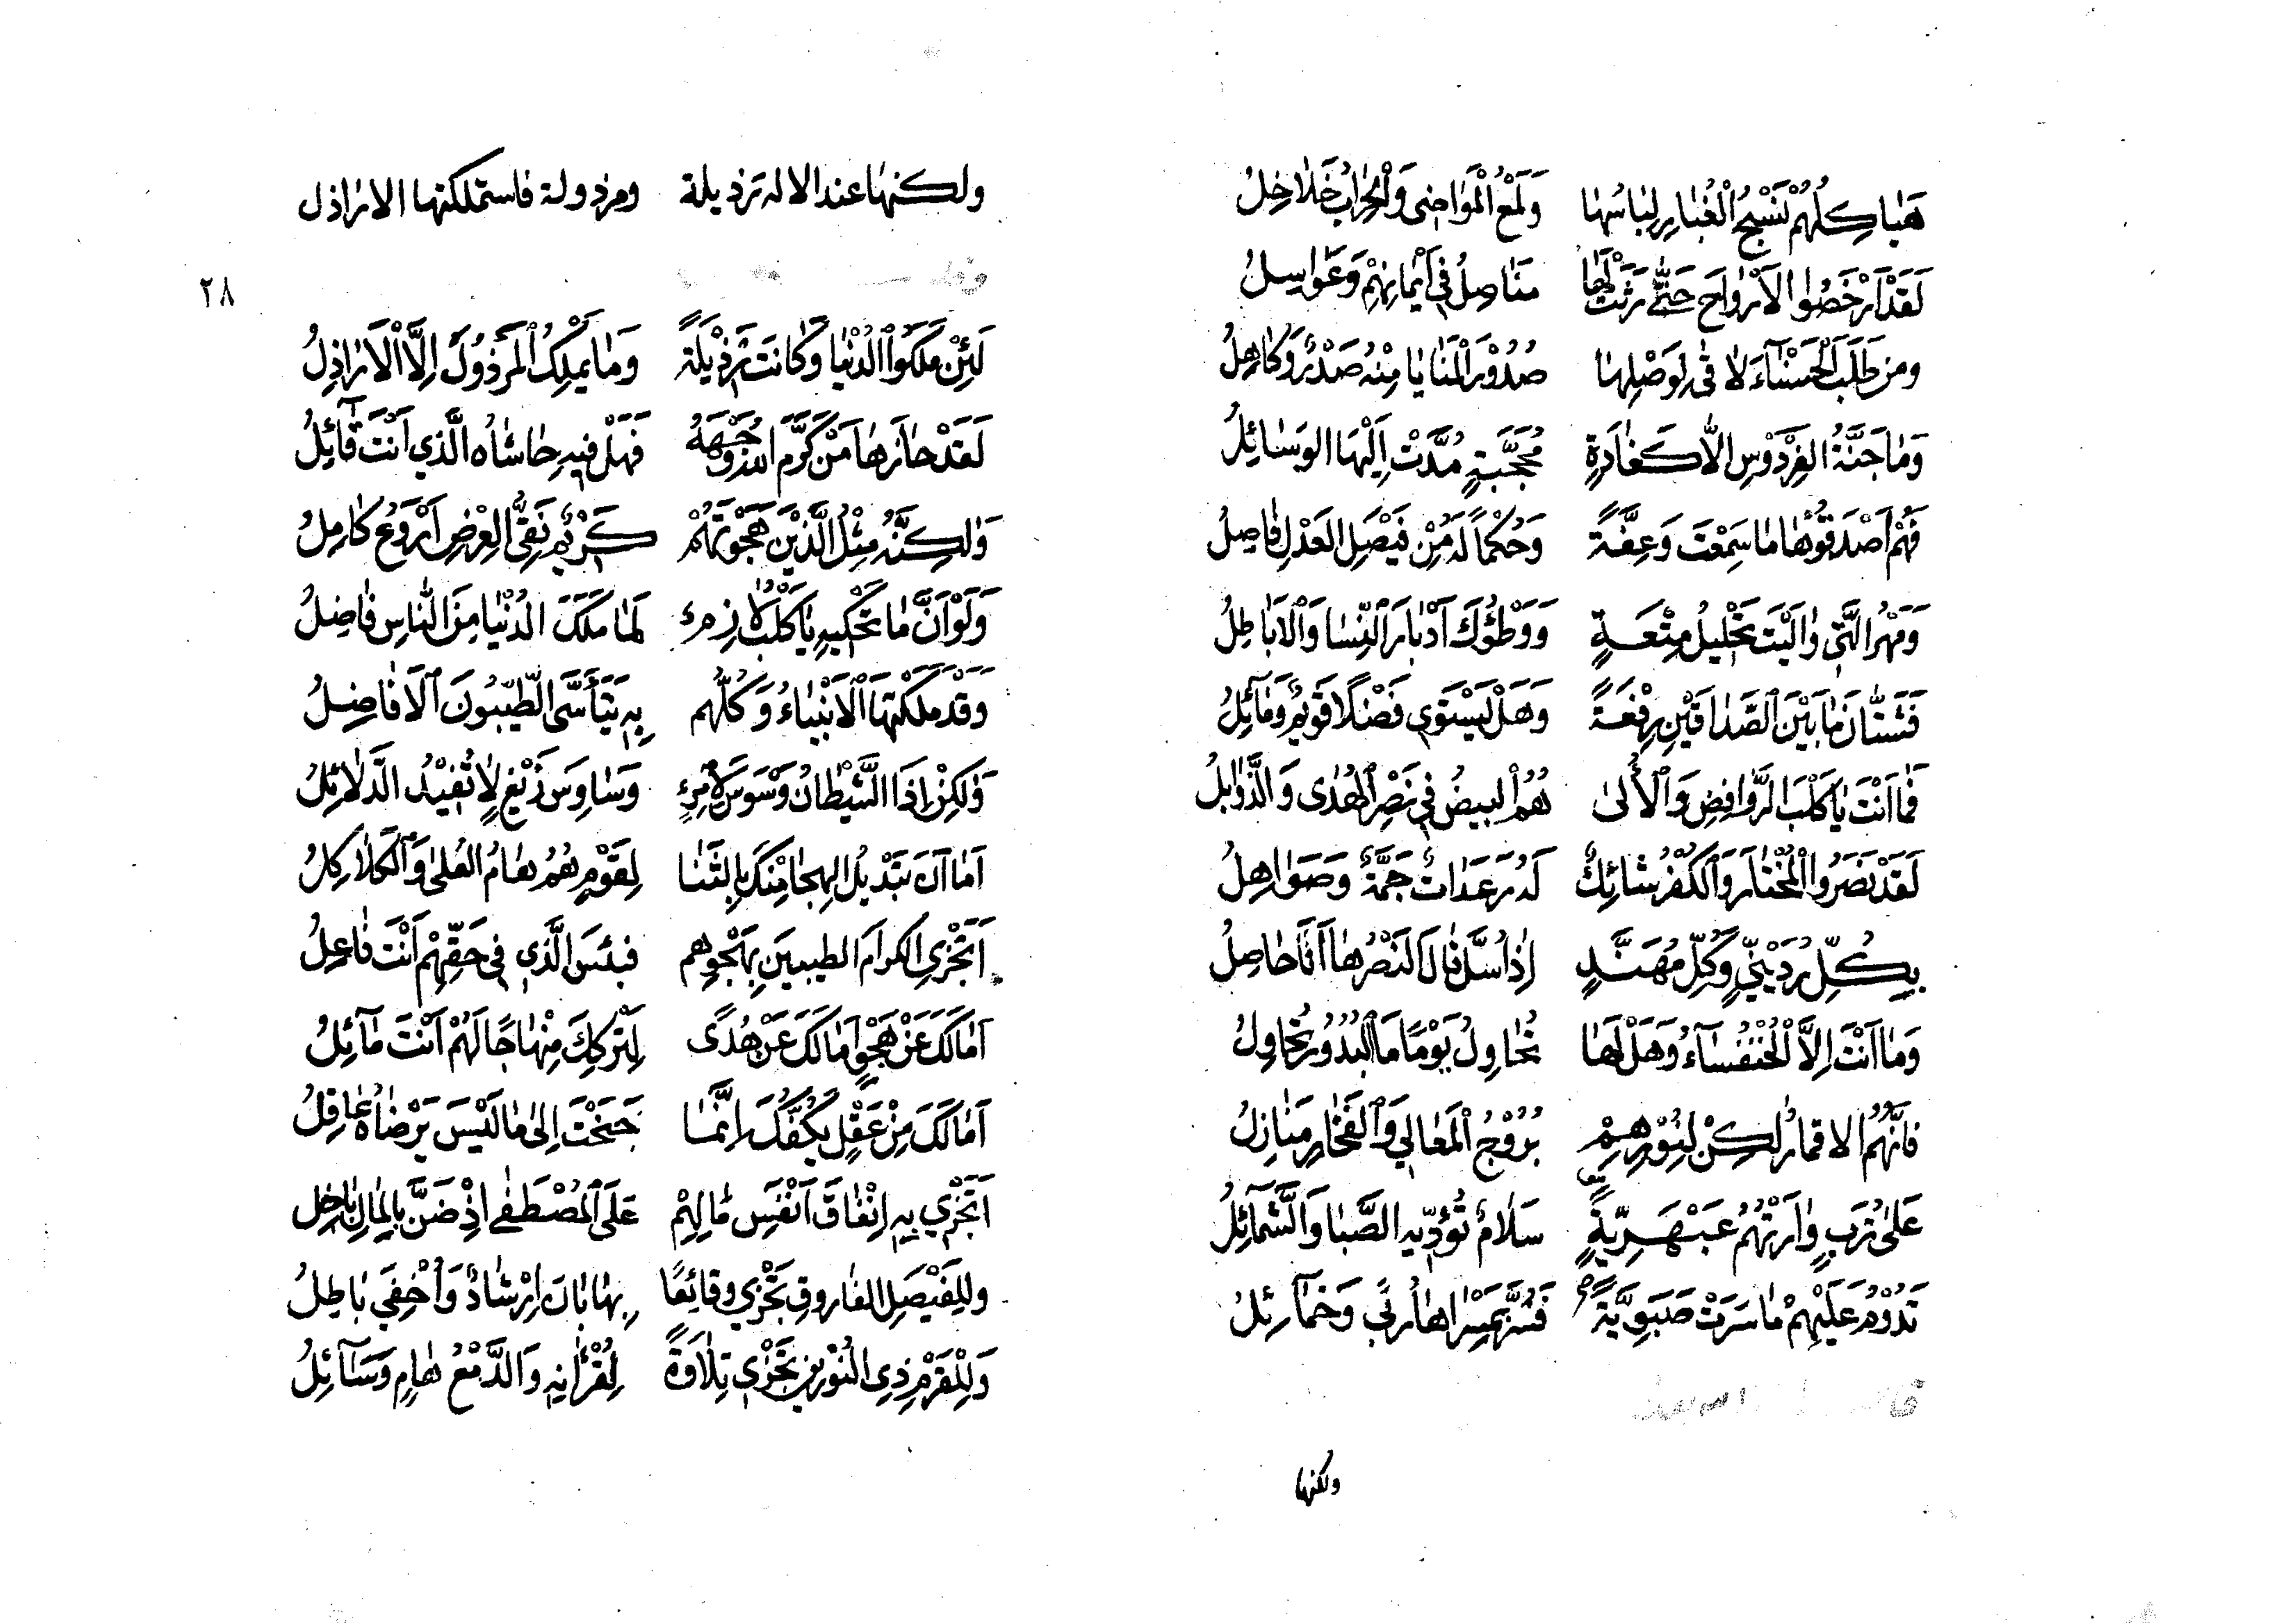 هَيَاكِلُهُمْ نَسْجُ الْغُبَارِ لِبَاسُهَا وَلَمْعُ الْمَوَاضِي وَالْحِرَابُ خَلَاخِلُ
لَقَدْ اَرْخَصُوا الْاَرْوَاحَ حَتّٰى رَثَتْ لَهَا مَنَاصِلُ فِي اَيْمَانِهِمْ وَعَوَاسِلُ
ومن طَلَبَ الْحَسْنَآءَ لَاقٰى لِوَصْلِهَا صُدُوْرَ الْمَنَايَا مِنْهُ صَدْرٌ وَكَاهِلُ
وَمَا جَنَّةُ الفِرْدَوْسِ اِلَّا كَغَادَةٍ مُحَجَّبَةٍ مُدَّتْ اِلَيْهَا الوَسَائِلُ
فَهُمْ اَصْدَقُوْهَا مَا سَمِعْتَ وَعِفَّةً وَحُكْمًا لَهُ مِنْ فَيْصَلِ العَدْلِ فَاصِلُ
وَمَهْرُ الَّتِي وَالَيْتَ تَحْلِيلُ مِتْعَةٍ وَوَطْؤُكَ اَدْبَارَ النِّسَا وَالْاَبَاطِلُ
فَشَتَّانَ مَا بَيْنَ الصَّدَاقَيْنِ رِفْعَةً وَهَلْ يَسْتَوِي فَضْلًا قَوِيْمٌ وَمَآئِلُ
فَمَا اَنْتَ يَا كَلْبَ الرَّوَافِضِ وَالْأُلىٰ هُمُ البِيضُ فِي نَصْرِ الْهُدٰى وَالذَّوَابِلُ
لَقَدْ نَصَرُوا الْمُخْتَارَ وَالْكُفْرُ شَائِكٌ لَهُ رَعَدَاتٌ جَمَّةٌ وَصَوَاهِلُ
بِكُلِّ رُدَيْنِيٍّ وَكُلِّ مُهَنَّدٍ اِذَا سُلَّ قَالَ النَصْرُ هَا اَنَا حَاصِلُ
وَمَا اَنْتَ اِلَّا الْخُنْفُسَآءُ وَهَلْ لَهَا تُحَاوِلُ يَوْمًا مَا الْبُدُوْرُ تُحَاوِلُ
فَاِنَّهُمُ الاقمَارُ لٰكِنْ لِنُوْرِهِمْ بُرُوْجُ الْمَعَالِي وَالْفَخَارِ مَنَازِلُ
عَلىٰ تُرَبٍ وَارَتْهُمُ عَبْهَرِيَّةٍ سَلَامٌ تُؤَدِّيهِ الصَّبَا وَالشَّمَآئِلُ
تَدُوْمُ عَلَيْهِمْ مَا سَرَتْ صَبَوِيَّةً وَخَمَآئِلُ
ولكنها
ولكنها عند الاله رذيلة ومرذولة فاستملكتها الاراذل
٢٨
لَئِنْ مَلَكُوا الدُنْيَا وَكَانَتْ رَذِيْلَةً وَمَا يَمْلِكُ الْمَرْذُوْلَ اِلَّا الْاَرَاذِلُ
لَقَدْ حَازَهَا مَنْ كَرَّمَ اللهُ وَجْهَهُ فَهَلْ فِيهِ حَاشَاهُ الَّذِي اَنْتَ قَآئِلُ
وَلٰكِنَّهُ مِثْلُ الَّذِيْنَ هَجَوْتَهُمْ كَرِيْمٌ نَقِيُّ العِرْضِ اَرْوَعُ كَامِلُ
وَلَوْ اَنَّ مَا تَحْكِيهِ يَا كَلْبُ لَازِمٌ لَمَا مَلَكَ الدُنْيَا مِنَ النَّاسِ فَاضِلُ
وَقَدْ مَلَكَتْهَا الْاَنْبِيَاءُ وَكُلُّهُم بِهِ يَتَأَسَّى الطَّيِّبُونَ الْاَفَاضِلُ
وَلٰكِنْ اِذَا الشَّيْطَانُ وَسْوَسَ لِامْرِءٍ وَسَاوِسَ زَيْغٍ لَا تُفِيْدُ الدَّلَائِلُ
اَمَا آنَ تَبْدِيْلُ الهِجَا مِنْكَ بِالثَنَا لِقَوْمٍ هُمُ هَامُ العُلىٰ وَالْكَلَاكِلُ
اَتَجْزِي الكرامَ الطيبينَ بِهَجْوِهم فبِئْسَ الَّذِي فِي حَقِّهِمْ اَنْتَ فَاعِلُ
اَمَا لَكَ عَنْ هَجْوٍ اَمَا لَكَ عَنْ هُدًى لِتَرْكِكَ مِنْهَاجًا لَهُمْ اَنْتَ مَآئِلُ
اَمَا لَكَ مِنْ عَقْلٍ يَكُفُّكَ اِنَّمَا جَنَحْتَ اِلىٰ مَا لَيْسَ يَرْضَاهُ عَاقِلُ
اَتَجْزِي بِهِ اِنْفَاقَ اَنْفَسِ مَالِهِمْ عَلَى الْمُصْطَفٰى اِذْ ضَنَّ بِالمَالِ بَاخِلُ
ولِلفَيْصَلِ الفَاروقِ تَجْزِي وقَائِعًا بِهَا بَانَ اِرْشَادٌ وَاُخْفِيَ بَاطِلُ
وَلِلْقَرْمِ ذِي النُوْرَيْنِ تَجْزِي تِلَاوَةً لِقُرْاٰنِهِ وَالدَّمْعُ هَامٍ وَسَآئِلُ